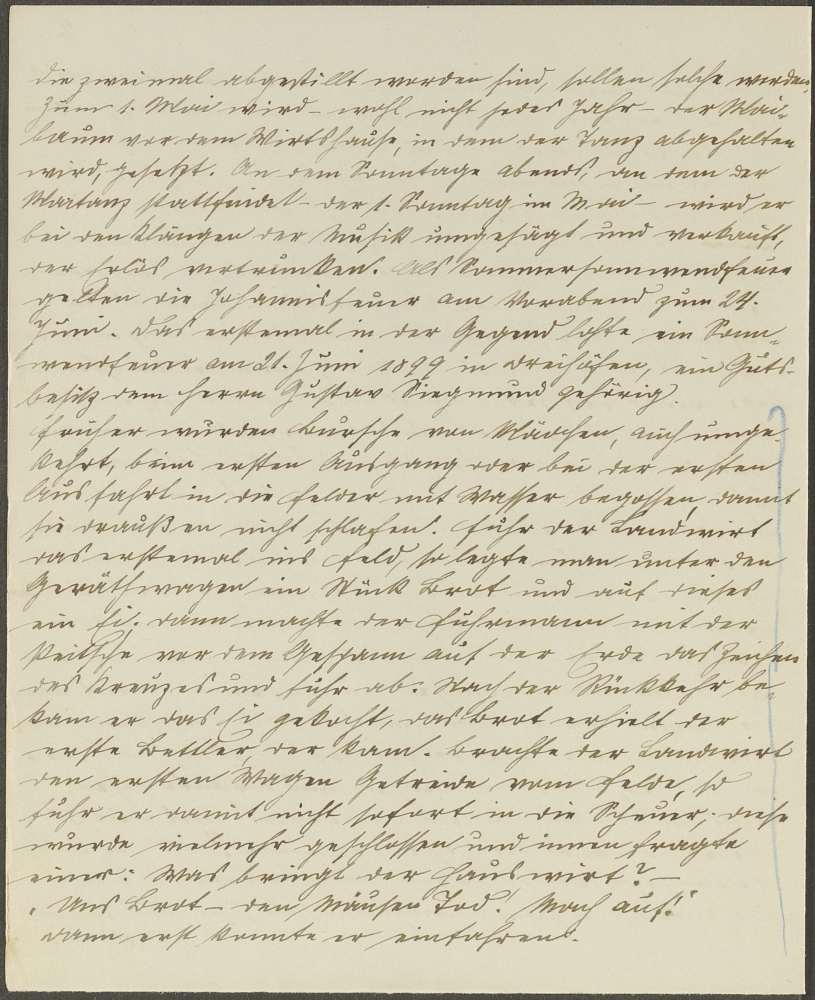 die zweimal abgestillt worden sind, sollen solche werden.
Zum 1. Mai wird – wohl nicht jedes Jahr – der Mai-
baum vor dem Wirtshause, in dem der Tanz abgehalten
wird, gesetzt. An dem Sonntage abends, an dem der
Maitanz stattfindet – der 1. Sonntag im Mai – wird er
bei den Klängen der Musik umgesägt und verkauft,
der Erlös vertrunken. Als Sommersonnwendfeuer
gelten die Johannisfeuer am Vorabend zum 24.
Juni. Das erstemal in der Gegend lohte ein Sonn-
wendfeuer am 21. Juni 1899 in Dreihöfen, ein Guts-
besitz dem Herrn Gustav Siegmund gehörig.
Früher wurden Bursche von Mädchen, auch umge-
kehrt, beim ersten Ausgang oder bei der ersten
Ausfahrt in die Felder mit Wasser begossen, damit
sie draußen nicht schlafen. Fuhr der Landwirt
das erstemal ins Feld, so legte man unter den
Geräthwagen ein Stück Brot und auf dieses
ein Ei. Dann machte der Fuhrmann mit der
Peitsche vor dem Gespann auf der Erde das Zeichen
des Kreuzes und fuhr ab. Nach der Rückkehr be-
kam er das Ei gekocht, das Brot erhielt der
erste Bettler, der kam. Brachte der Landwirt
den ersten Wagen Getreide vom Felde, so
fuhr er damit nicht sofort in die Scheuer; diese
wurde vielmehr geschlossen und innen fragte
einer: Was bringt der Hauswirt? –
"Uns Brot – den Mäusen Tod! Mach auf!"
Dann erst konnte er einfahren.